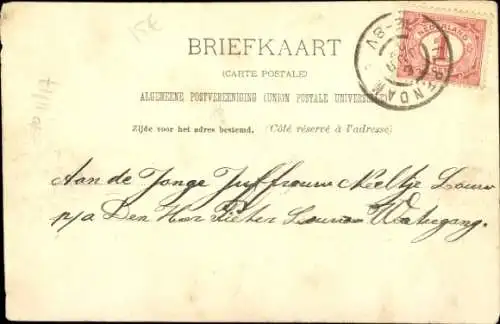 15€
BRIEFKAART
(CARTE POSTALE)
ALGEMEENE POSTVEREENIGING (UNION POSTALE UNIVERSELLE)
Zijde voor het adres bestemd. (Côté réservé à l'adresse)
NEDERLAND
1
Aan de Jonge Juffrouw Neeltje Louw
p/a Den Heer Pieter Louw Watergang.